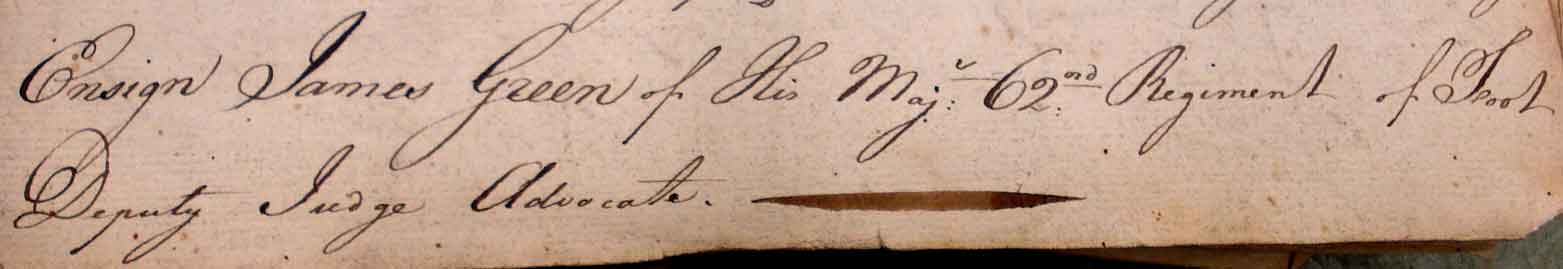 Ensign James Green of His Maj: 62nd Regiment of Foot
Deputy Judge Advocate.